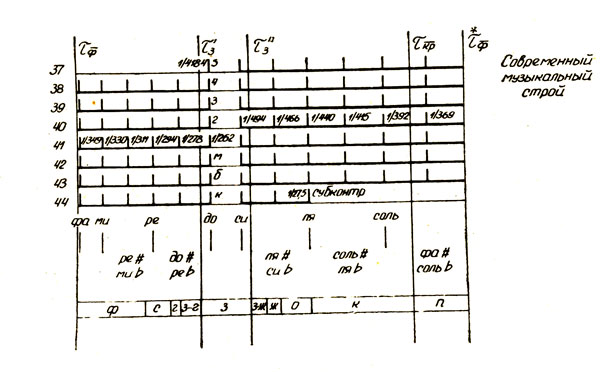 τф τз' τз" τкр *τф
Современный
музыкальный
строй
37 1/4184 5
38 4
39 3
40 2 1/494 1/466 1/440 1/415 1/392 1/369
41 1/349 1/330 1/311 1/294 1/278 1/262
42 м
43 б
44 к 1/27,5 субконтр
фа ми ре до си ля соль
ре # до # ля # соль # фа #
ми b ре b си b ля b соль b
Ф С Г З-Г З З-Ж Ж О К П